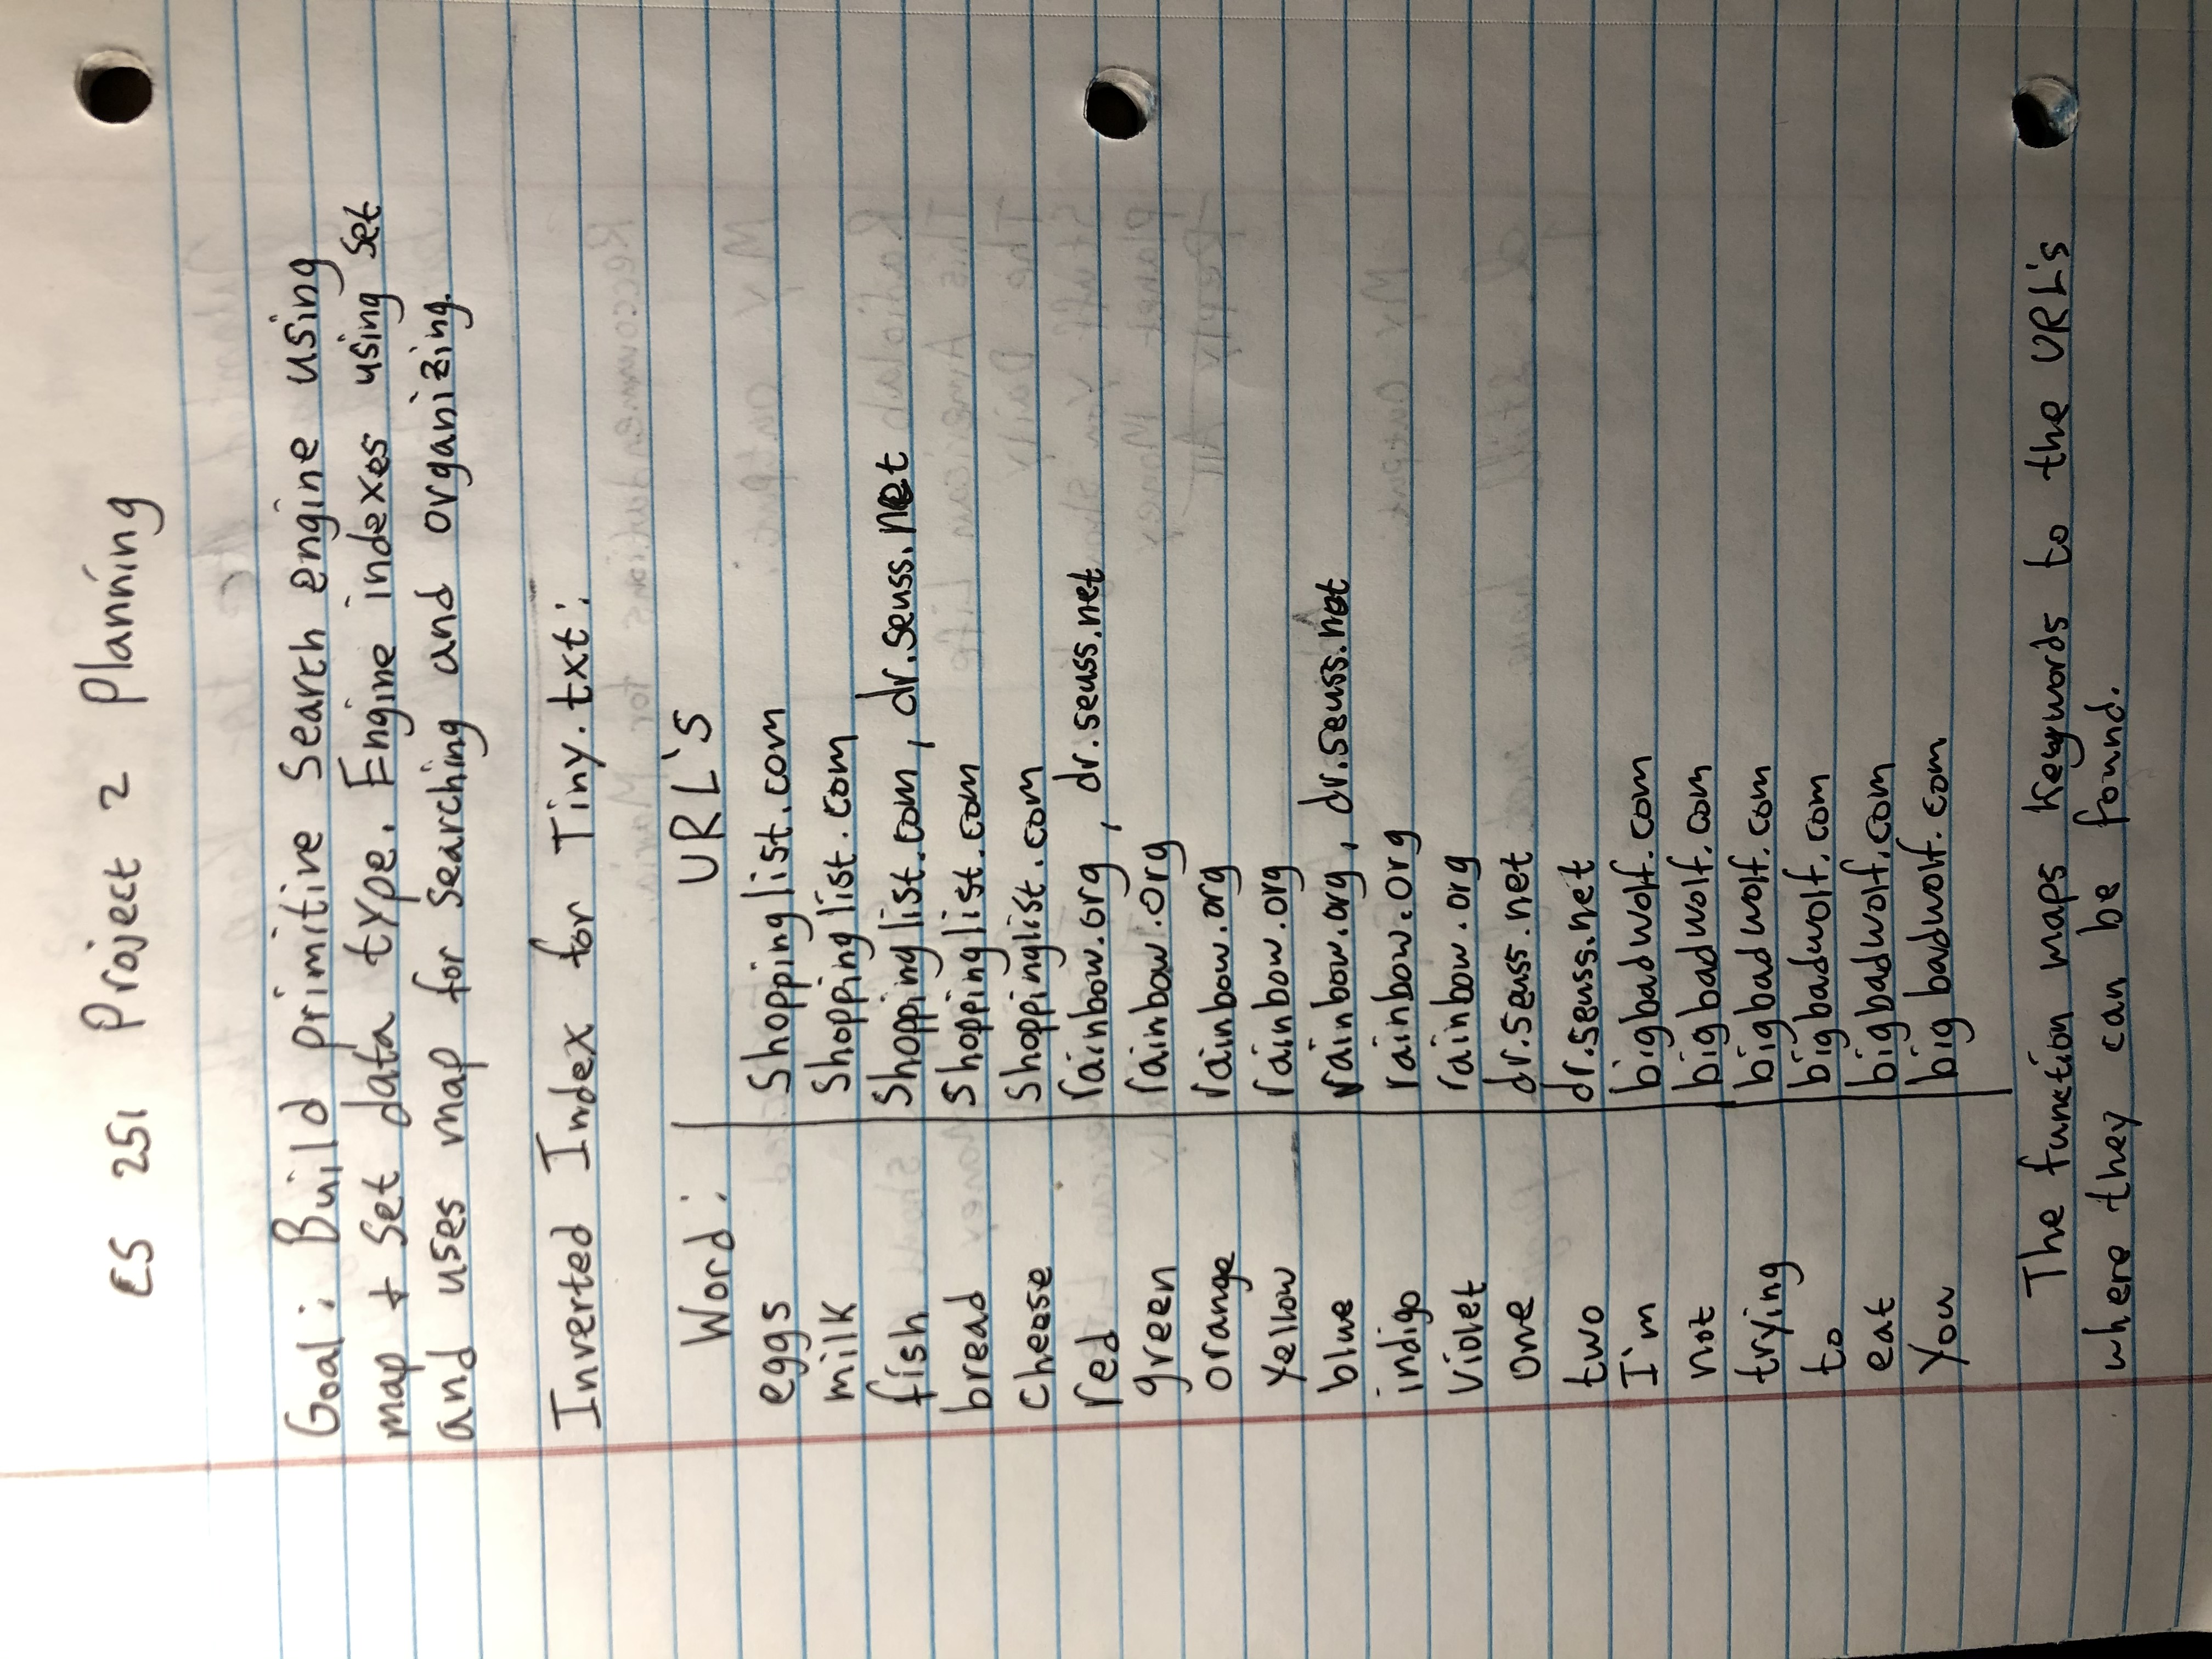 CS 251 Project 2 Planning
Goal: Build primitive Search engine using
map + Set data type. Engine indexes using set
and uses map for searching and organizing.
Inverted Index for Tiny.txt:
Word: URL's
eggs Shoppinglist.com
milk Shoppinglist.com
fish Shoppinglist.com, dr.seuss.net
bread Shoppinglist.com
Cheese Shoppinglist.com
red rainbow.org, dr.seuss.net
green rainbow.org
orange rainbow.org
Yellow rainbow.org
blue rainbow.org, dr.seuss.net
indigo rainbow.org
Violet rainbow.org
one dr.seuss.net
two dr.seuss.net
I'm bigbadwolf.com
not bigbadwolf.com
trying bigbadwolf.com
to bigbadwolf.com
eat bigbadwolf.com
You bigbadwolf.com
The function maps Keywords to the URL's
where they can be found.